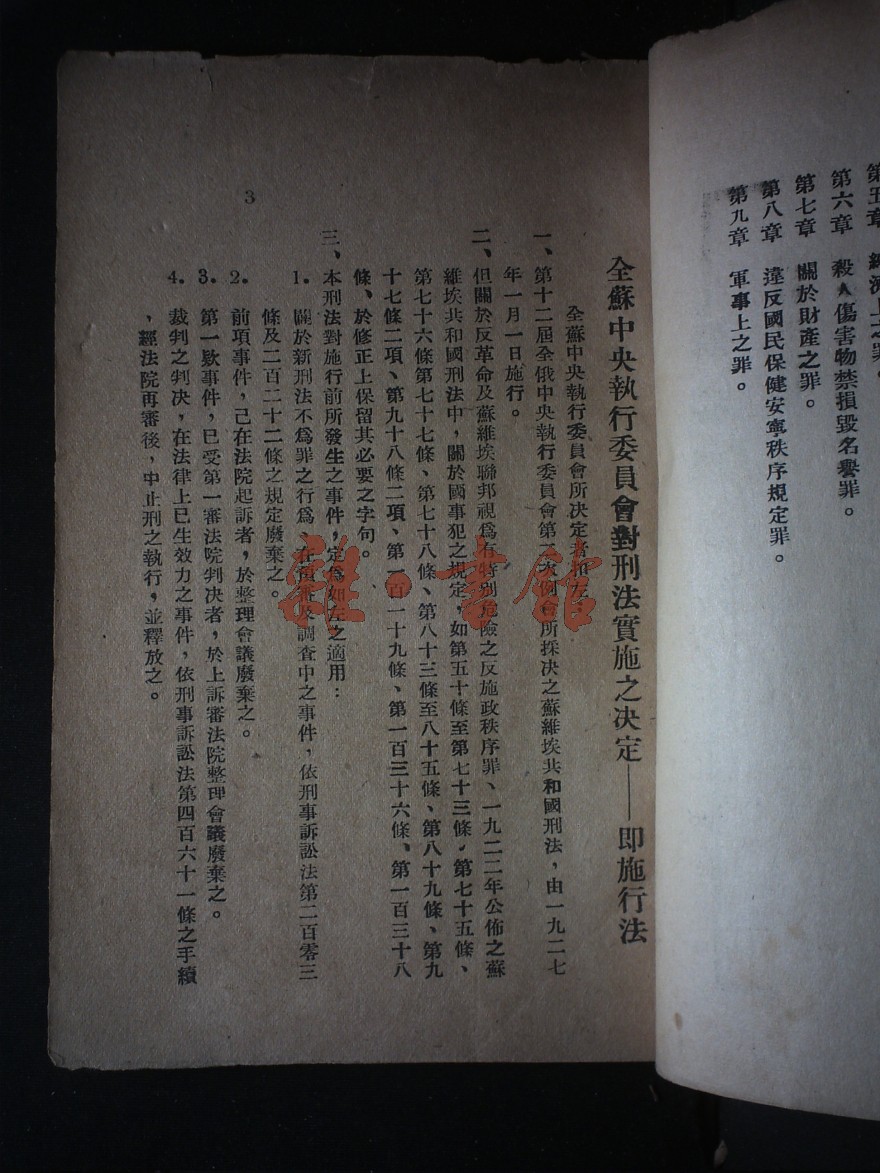 第六章　殺人傷害物禁損毀名譽罪。
第七章　關於財產之罪。
第八章　違反國民保健安寧秩序規定罪。
第九章　軍事上之罪。
全蘇中央執行委員會對刑法實施之決定——即施行法
全蘇中央執行委員會所決定者如左：
一、第十二屆全俄中央執行委員會第二次例會所採決之蘇維埃共和國刑法，由一九二七
年一月一日施行。
二、但關於反革命及蘇維埃聯邦視爲有特別危險之反施政秩序罪、一九二二年公佈之蘇
維埃共和國刑法中，關於國事犯之規定，如第五十條至第七十三條，第七十五條、
第七十六條第七十七條、第七十八條、第八十三條至八十五條、第八十九條、第九
十七條二項、第九十八條二項、第一百一十九條、第一百三十六條、第一百三十八
條、於修正上保留其必要之字句。
三、本刑法對施行前所發生之事件，定爲如左之適用：
1。關於新刑法不爲罪之行爲、在預審及調查中之事件，依刑事訴訟法第二百零三
條及二百二十二條之規定廢棄之。
2。前項事件，已在法院起訴者，於整理會議廢棄之。
3。第一欵事件，已受第一審法院判決者，於上訴審法院整理會議廢棄之。
4。裁判之判決，在法律上已生效力之事件，依刑事訴訟法第四百六十一條之手續
，經法院再審後，中止刑之執行，並釋放之。
3
雜·書館